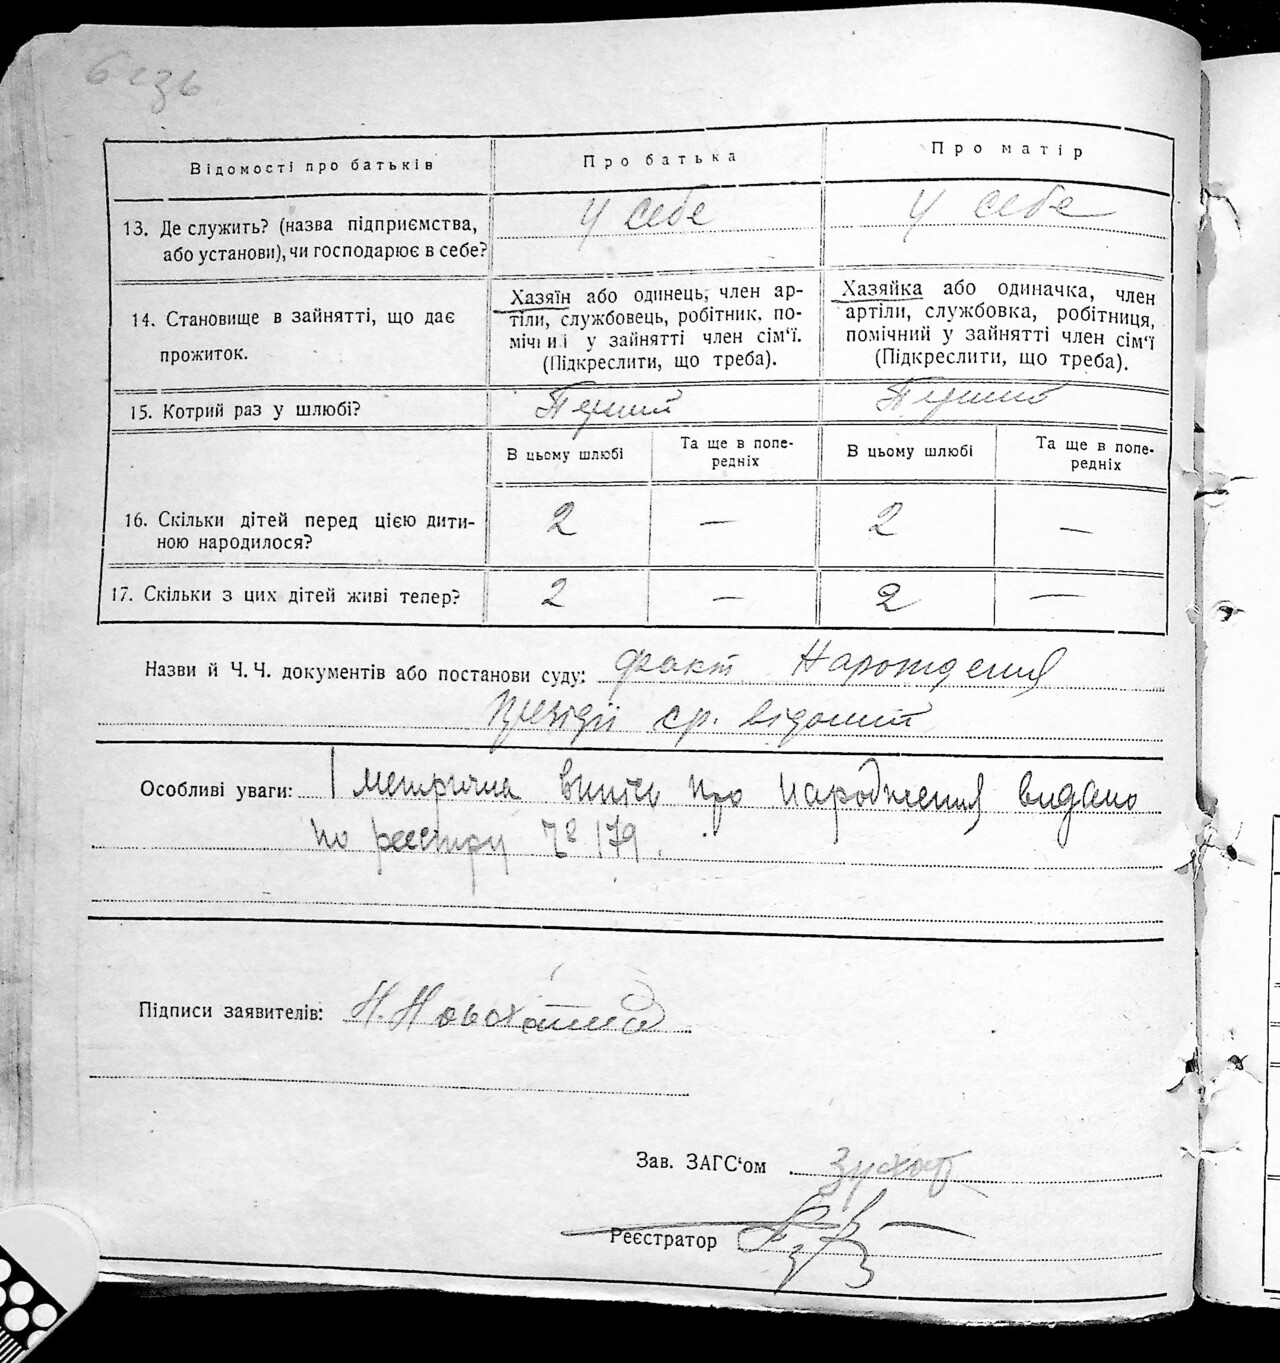 Відомості про батьків
Про батька
Про матір
13. Де служить? (назва підприємства,
або установи), чи господарює в себе?
У себе
У себе
14. Становище в зайнятті, що дає
прожиток.
Хазяїн або одинець, член ар-
тіли, службовець, робітник, по-
мічний у зайнятті член сім'ї.
(Підкреслити, що треба).
Хазяйка або одиначка, член
артіли, службовка, робітниця,
помічний у зайнятті член сім'ї
(Підкреслити, що треба).
15. Котрий раз у шлюбі?
Перший
Перший
В цьому шлюбі
Та ще в попе-
редніх
В цьому шлюбі
Та ще в попе-
редніх
16. Скільки дітей перед цією дити-
ною народилося?
2 — 2 —
17. Скільки з цих дітей живі тепер?
2 — 2 —
Назви й Ч. Ч. документів або постанови суду: факт Нарождения
Президії ср. відомий
Особливі уваги: І метрична випись про народження видано
по реєстру № 179.
Підписи заявителів: Н. Новохатній
Зав. ЗАГС'ом
Реєстратор